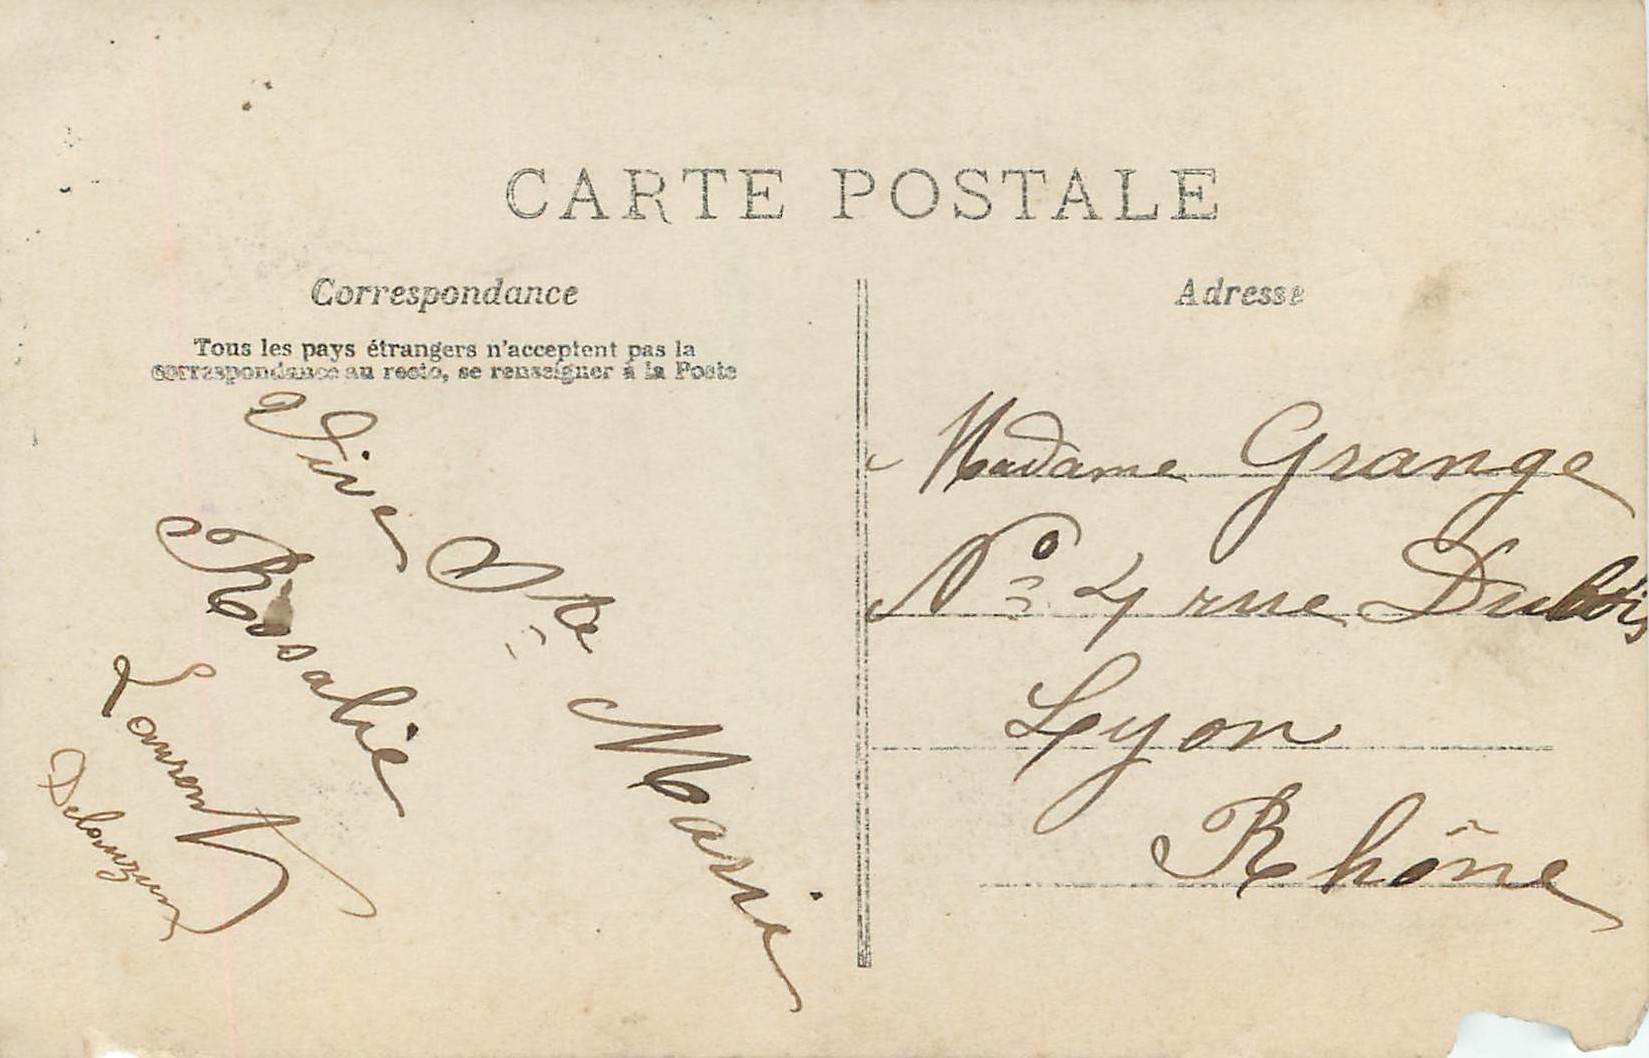 CARTE POSTALE
Correspondance
Tous les pays étrangers n'acceptent pas la
correspondance au recto, se renseigner à la Poste
Vive Ste Marie
Rosalie
Laurent
Adresse
Madame Grange
No 4 rue Dubois
Lyon
Rhône